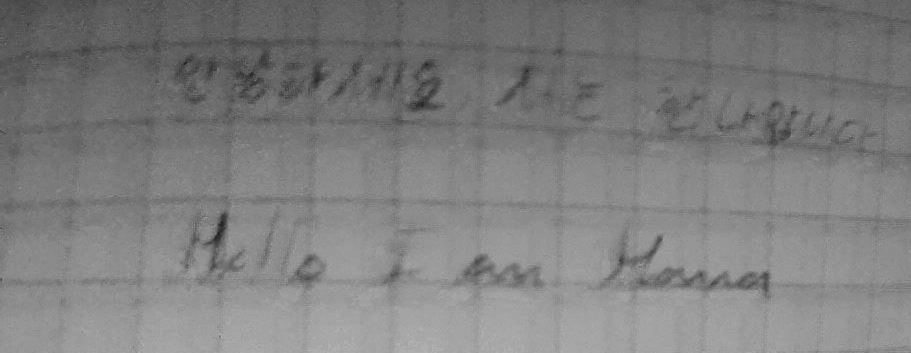 안녕하세요 저는 한나입니다
Hello I am Hanna